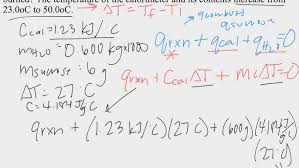 burned. The temperature of the calorimeter and its contents increase from
23.0oC to 50.0oC. → ΔT = Tf - Ti
Ccal = 1.23 kJ/°C
mH2O = 0.600 kg x 1000
msucrose = 6 g
ΔT = 27°C
C = 4.184 J/g°C
qsucrose
qrxn + qcal + qH2O = 0
qrxn + Ccal ΔT + mCΔT = 0
qrxn + (1.23 kJ/°C)(27°C) + (600g)(4.184 J/g°C)
(27°C)